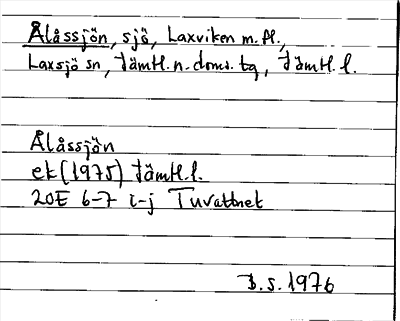 Ålåssjön, sjö, Laxviken m.fl.,
Laxsjö sn, Jämtl.n.doms.tg, Jämtl.l.
Ålåssjön
ek(1975) Jämtl.l.
20E 6-7 i-j Tuvattnet
B.S.1976